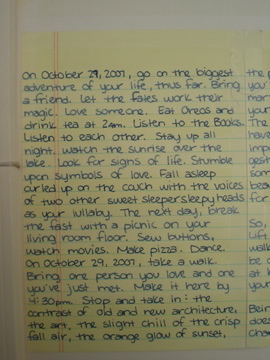 on October 29, 2007, go on the biggest
adventure of your life, thus far. Bring
a friend. Let the fates work their
magic. Love someone. Eat Oreos and
drink tea at 2am. Listen to the Books.
Listen to each other. Stay up all
night. Watch the sunrise over the
lake. Look for signs of life. Stumble
upon symbols of love. Fall asleep
curled up on the couch with the voices
of two other sweet sleepersleepyheads
as your lullaby. The next day, break
the fast with a picnic on your
living room floor. Sew buttons,
watch movies. Make pizza. Dance.
On October 29, 2007, take a walk.
Bring one person you love and one
you've just met. Make it here by
4:30pm. Stop and take in: the
contrast of old and new architecture,
the art, the slight chill of the crisp
fall air, the orange glow of sunset,